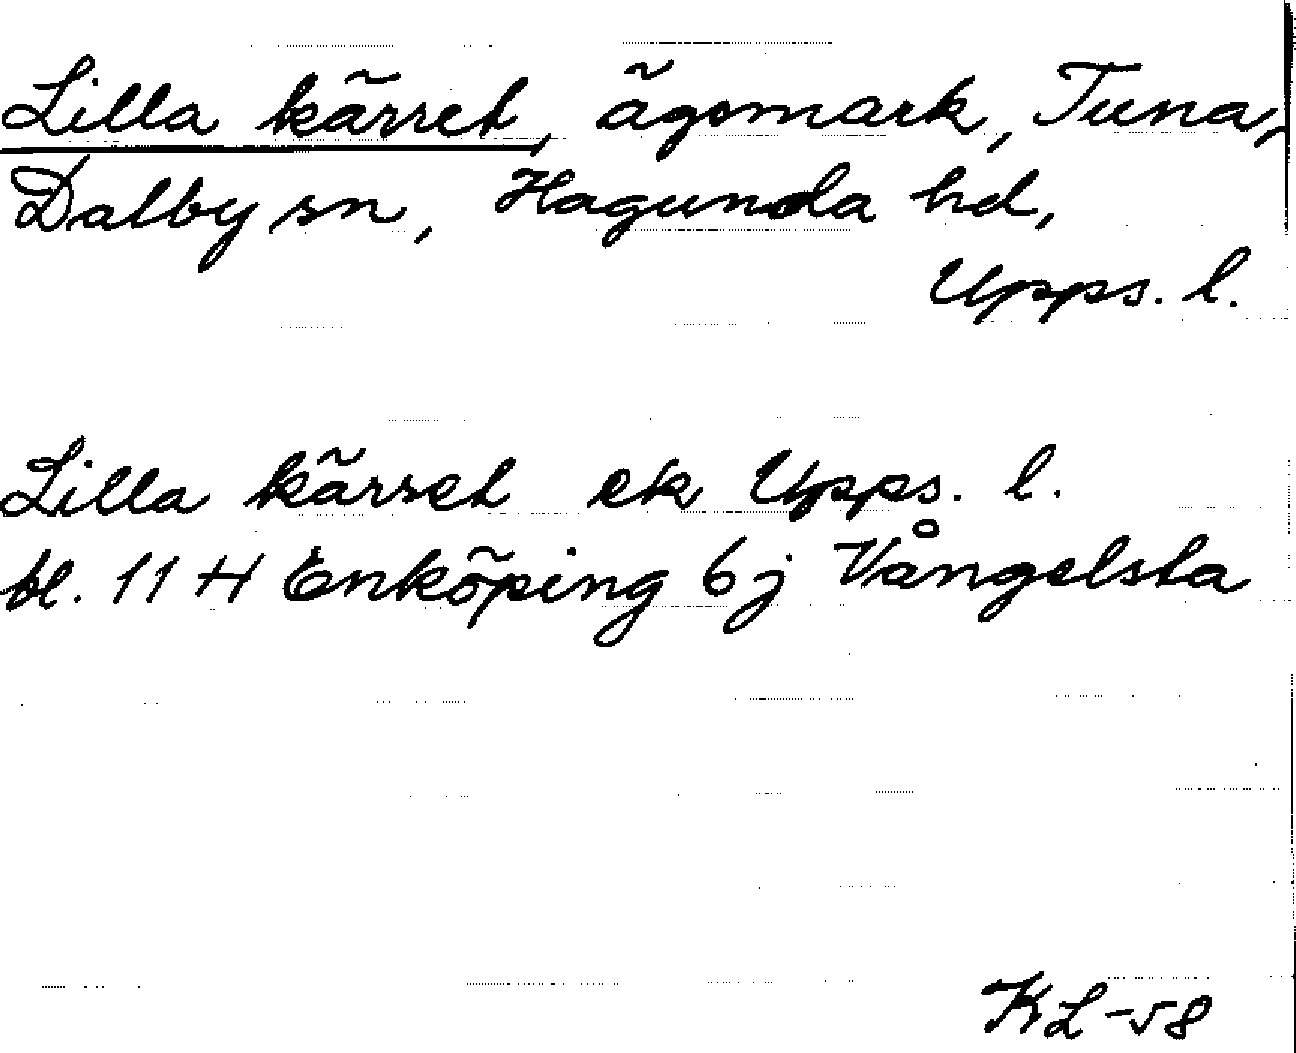 Lilla kärret, ägomark, Tuna,
Dalby sn, Hagunda hd,
Upps. l.
Lilla kärret ek Upps. l.
bl. 11 H Enköping 6 j Vångelsta
KL-58